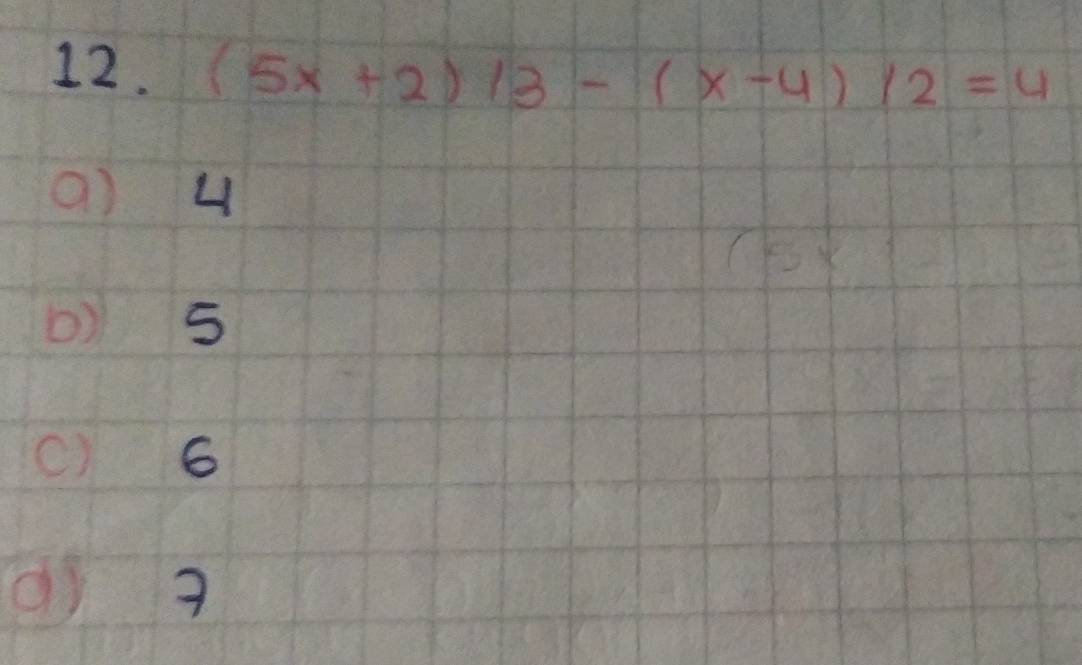 12. (5x + 2) / 3 - (x - 4) / 2 = 4
a) 4
b) 5
c) 6
d) 7